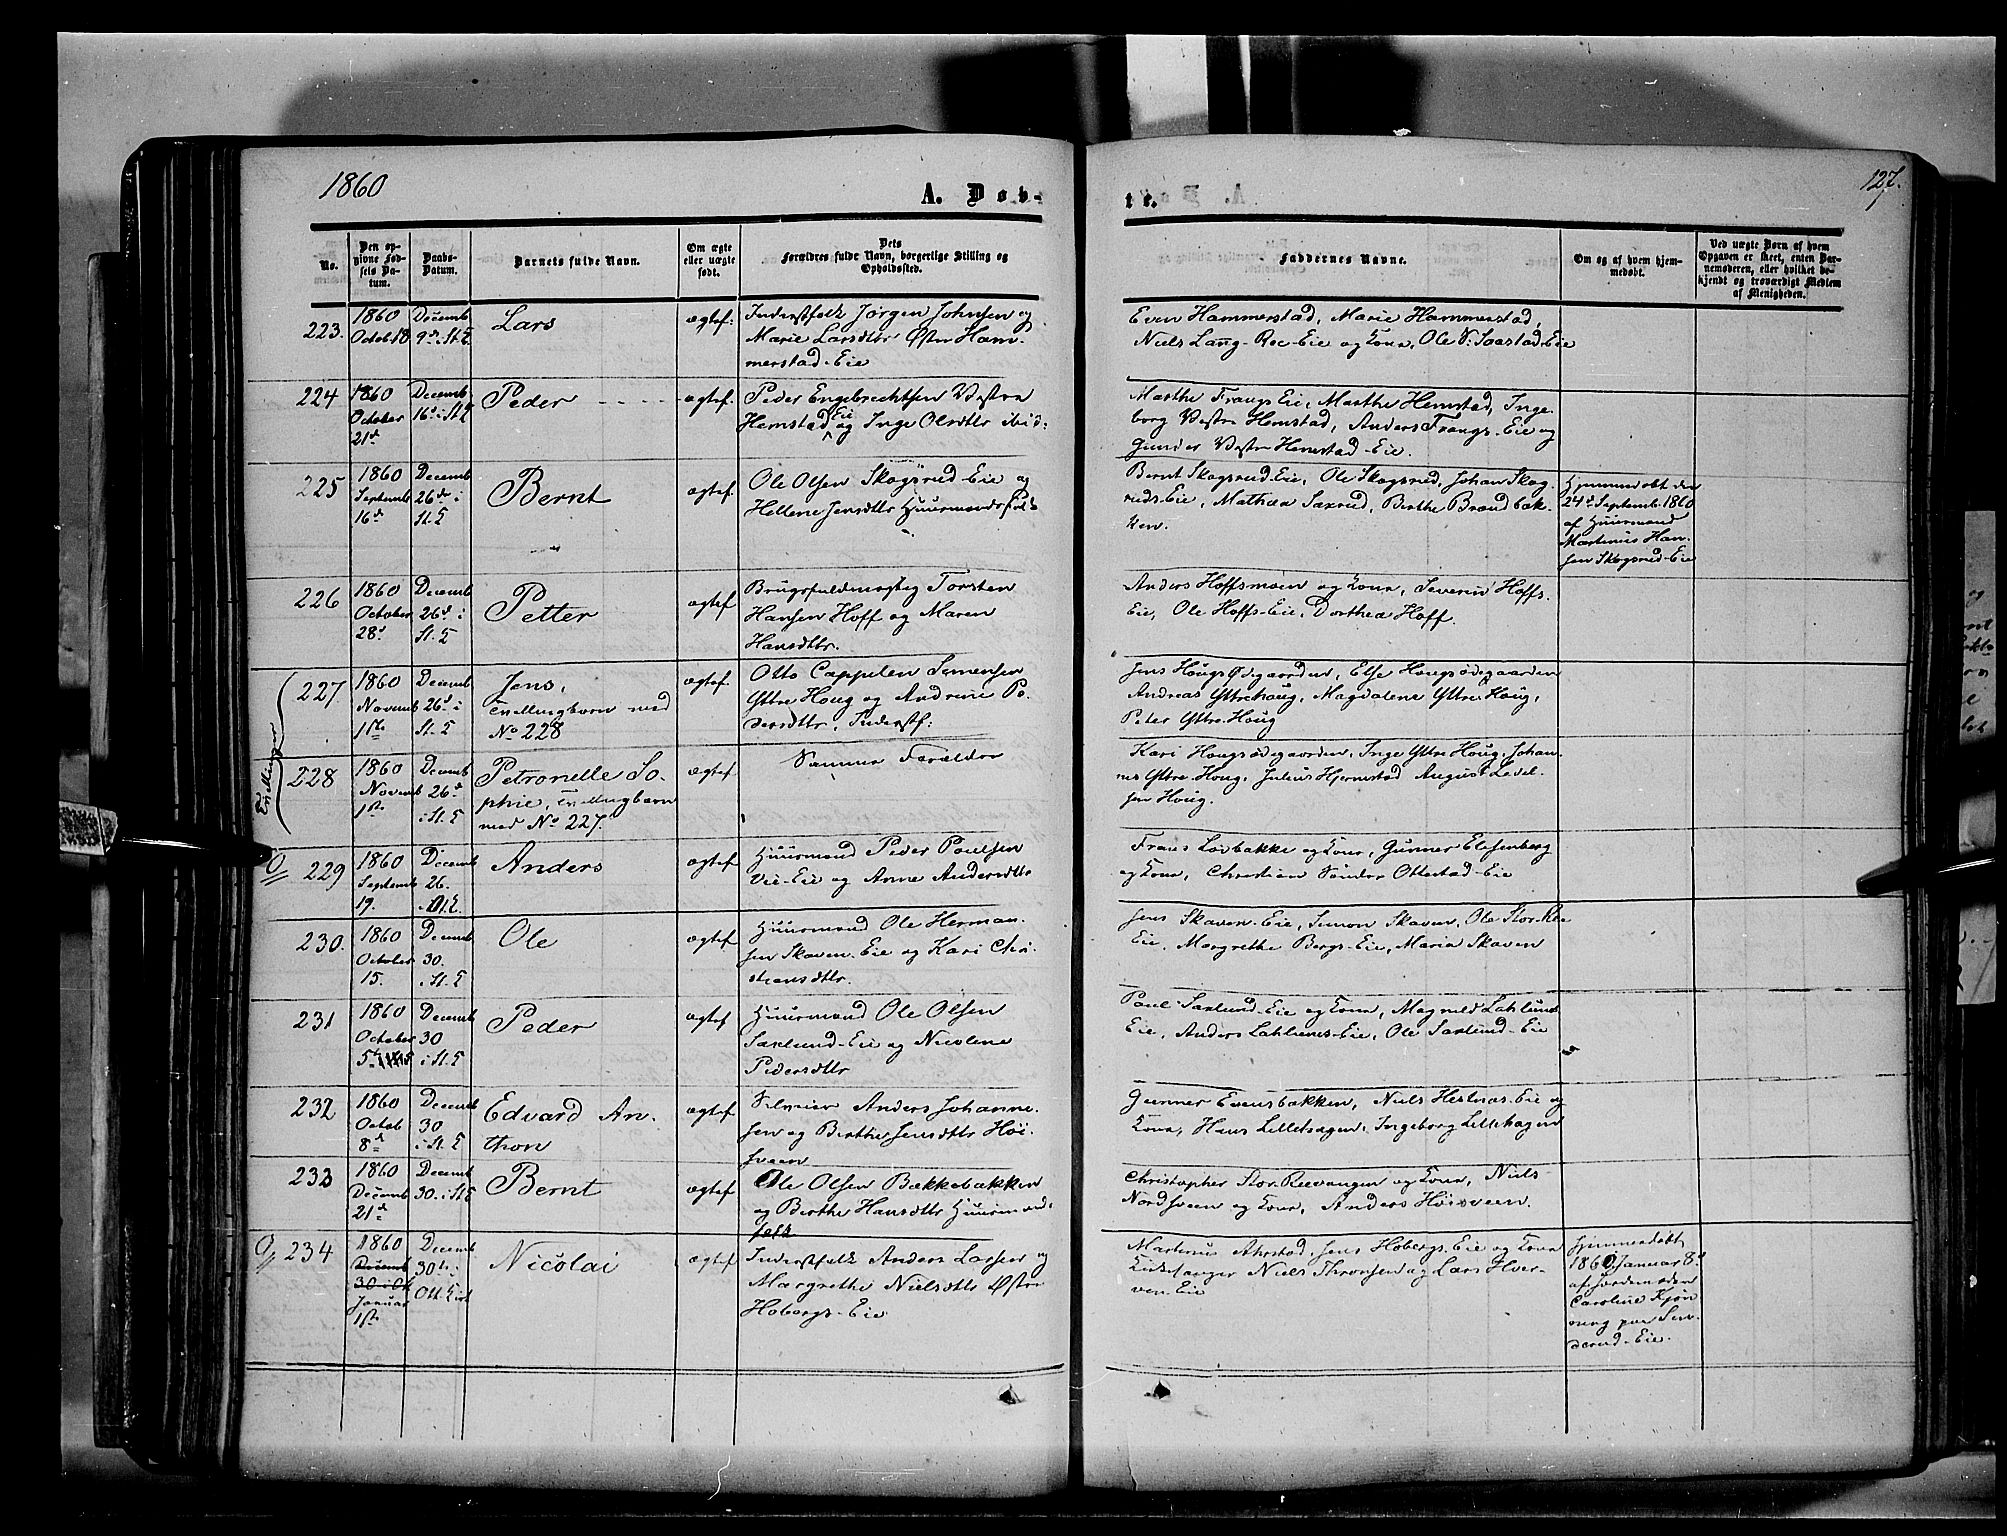 1860
A. Døb-
te.
127.
No.
Den op-
givne Fød-
sels Da-
tum.
Daabs-
Datum.
Barnets fulde Navn.
Om ægte
eller uægte
født.
Dets
Forældres fulde Navn, borgerlige Stilling og
Opholdssted.
Faddernes Navne.
Om og af hvem hjem-
medøbt.
Ved uægte Børn af hvem
Opgaven er skeet, enten Bar-
nemoderen, eller hvilket be-
kjendt og troværdigt Medlem
af Menigheden.
223.
1860
Octob 18
Decemb
9de i St. E
Lars
ægtef:
Inderstfolk Jørgen Johnsen og
Marie Larsdtr Østre Ham-
merstad-Eie
Even Hammerstad, Marie Hammerstad,
Niels Lang-Ree-Eie og Kone, Ole N. Saastad-Eie
224
1860
October
21de
Decemb
16de i St. E
Peder
ægtef.
Peder Engebrechtsen Vestre
Hemstad Eie og Inge Olsdtr ibid:
Marthe Frangs Eie, Marthe Hemstad, Inge-
borg Vestre Hemstad, Anders Frangs-Eie og
Gunder Vestre Hemstad-Eie.
225
1860
Septemb
16de
Decemb
26de i
St. E
Bernt
ægtef.
Ole Olsen Skogsrud-Eie og
Hellene Jensdtr Huusmandsfolk
Bernt Skogsrud-Eie, Ole Skogsrud, Johan Skog-
ruds-Eie, Mathea Saxrud, Berthe Brandbak-
ken.
Hjemmedøbt den
24de Septemb. 1860
af Huusmand
Martinus Han-
sen Skogsrud-Eie
226
1860
October
28de
Decemb
26de i
St. E
Petter
ægtef
Brugsfuldmægtig Torsten
Hansen Hoff og Maren
Hansdtr.
Anders Hoffsmoen og Kone, Severin Hoffs-
Eie, Ole Hoffs-Eie, Dorthea Hoff.
Tvillinger
227.
1860
Novemb
11te
Decemb
26de i
St. E
Jens,
Tvillingbarn med
No 228
ægtef.
Otto Cappelen Simensen
Yttre Houg og Andrine Pe-
dersdtr, Inderstf:
Jens Hougs Ødegaarden, Else Hougsødegaarden
Andreas Yttrehoug, Magdalene Yttre-Houg,
Peter Yttre-Houg
228
1860
Novemb
1ste
Decemb
26de
i St. E
Petronelle So-
phie, Tvillingbarn
med No 227.
ægtef
Samme Forældre
Kari Hougsødegaarden, Inge Yttre Houg, Johan-
nes Yttre-Houg, Julius Hjemstad August
sen Houg.
229
1860
Septemb
19.
Decemb
26.
i Ot. E.
Anders
ægtef
Huusmand Peder Poulsen
Vie-Eie og Anne Andersdtr
Frans Løvbakke og Kone, Gunner Elesenberg
og Kone, Christian Søndre Ottestad-Eie
230.
1860
October
15.
Decemb
30.
i St. E
Ole
ægtef
Huusmand Ole Herman-
sen Skaven-Eie og Kari Chri-
stiansdtr.
Jens Skaven-Eie, Simon Skaven, Ole Stor-Ree
Eie, Margrethe Bergs-Eie, Maria Skaven
231
1860
October
5te
Decemb
30
i St. E
Peder
ægtef
Huusmand Ole Olsen
Saxlund-Eie og Nicoline
Pedersdtr
Poul Saxlund-Eie og Kone, Magnild Lahlums
Eie, Anders Lahlums-Eie, Ole Saxlund-Eie
232
1860
Octob
8de
Decemb
30
i St. E
Edvard An-
thon
ægtef
Selveier Anders Johanne-
sen og Berthe Jensdtr Høi-
sveen
Gunner Evensbakken, Niels Hestnæs-Eie og
Kone, Hans Lillehagen, Ingeborg Lillehagen
233
1860
Decemb
21de
Decemb
30. i St. E
Bernt
ægtef
Ole Olsen Bækkebakken
og Berthe Hansdtr Huusmands-
folk
Christopher Stor-Reevangen og Kone, Niels
Nordsveen og Kone, Anders Høisveen.
234
1860
Decemb
30
Januar
1ste
Decemb
30te i
Ott. Kirk
Nicolai
ægtef
Inderstfolk Anders Larsen og
Margrethe Nielsdtr Østre
Hobergs-Eie
Martinus Ahrstad, Jens Hobergs-Eie og Kone
Kirkesanger Niels Thronsen og Lars Hver-
ven-Eie
Hjemmedøbt
1860 Januar 8de
af Jordemoderen
Caroline Kjøn-
ning paa Sen-
derud-Eie.